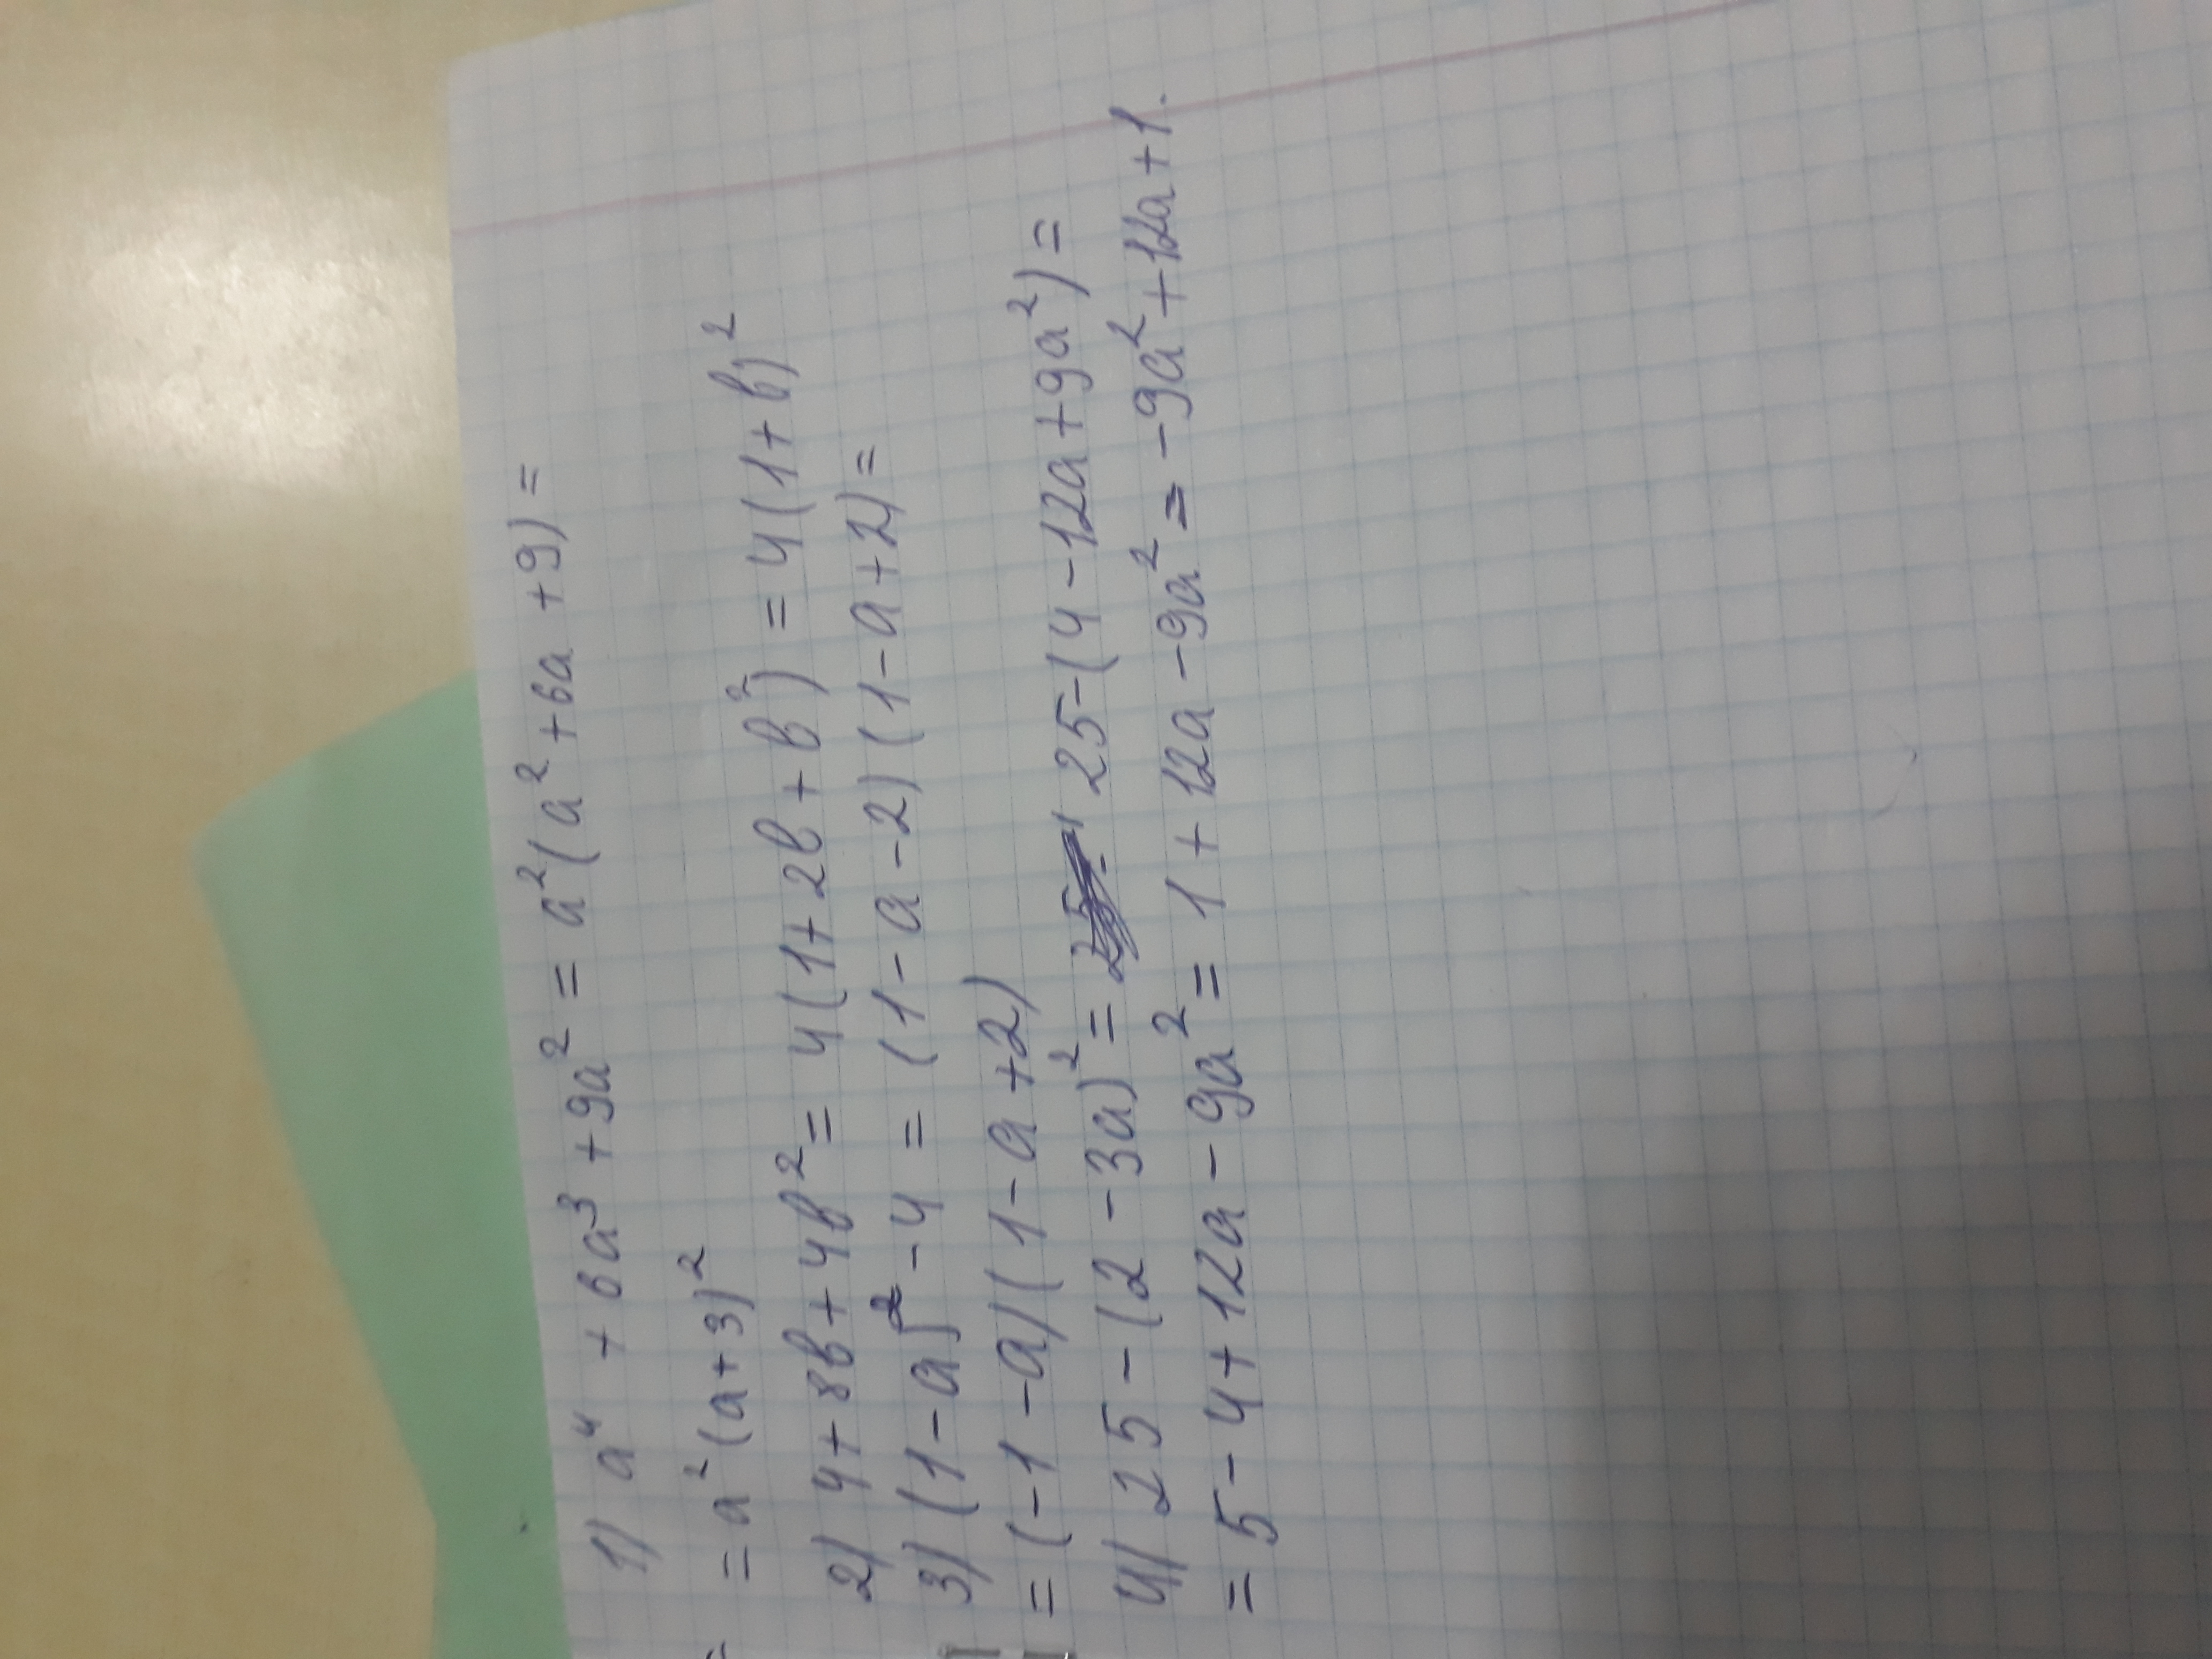 1) a⁴ + 6a³ + 9a² = a²(a² + 6a + 9) =
= a²(a+3)²
2) 4 + 8b + 4b² = 4(1 + 2b + b²) = 4(1 + b)²
3) (1 - a)² - 4 = (1 - a - 2)(1 - a + 2) =
= (-1 - a)(1 - a + 2)
4) 25 - (2 - 3a)² = 25 - (4 - 12a + 9a²) =
= 5 - 4 + 12a - 9a² = 1 + 12a - 9a² = -9a² + 12a + 1.